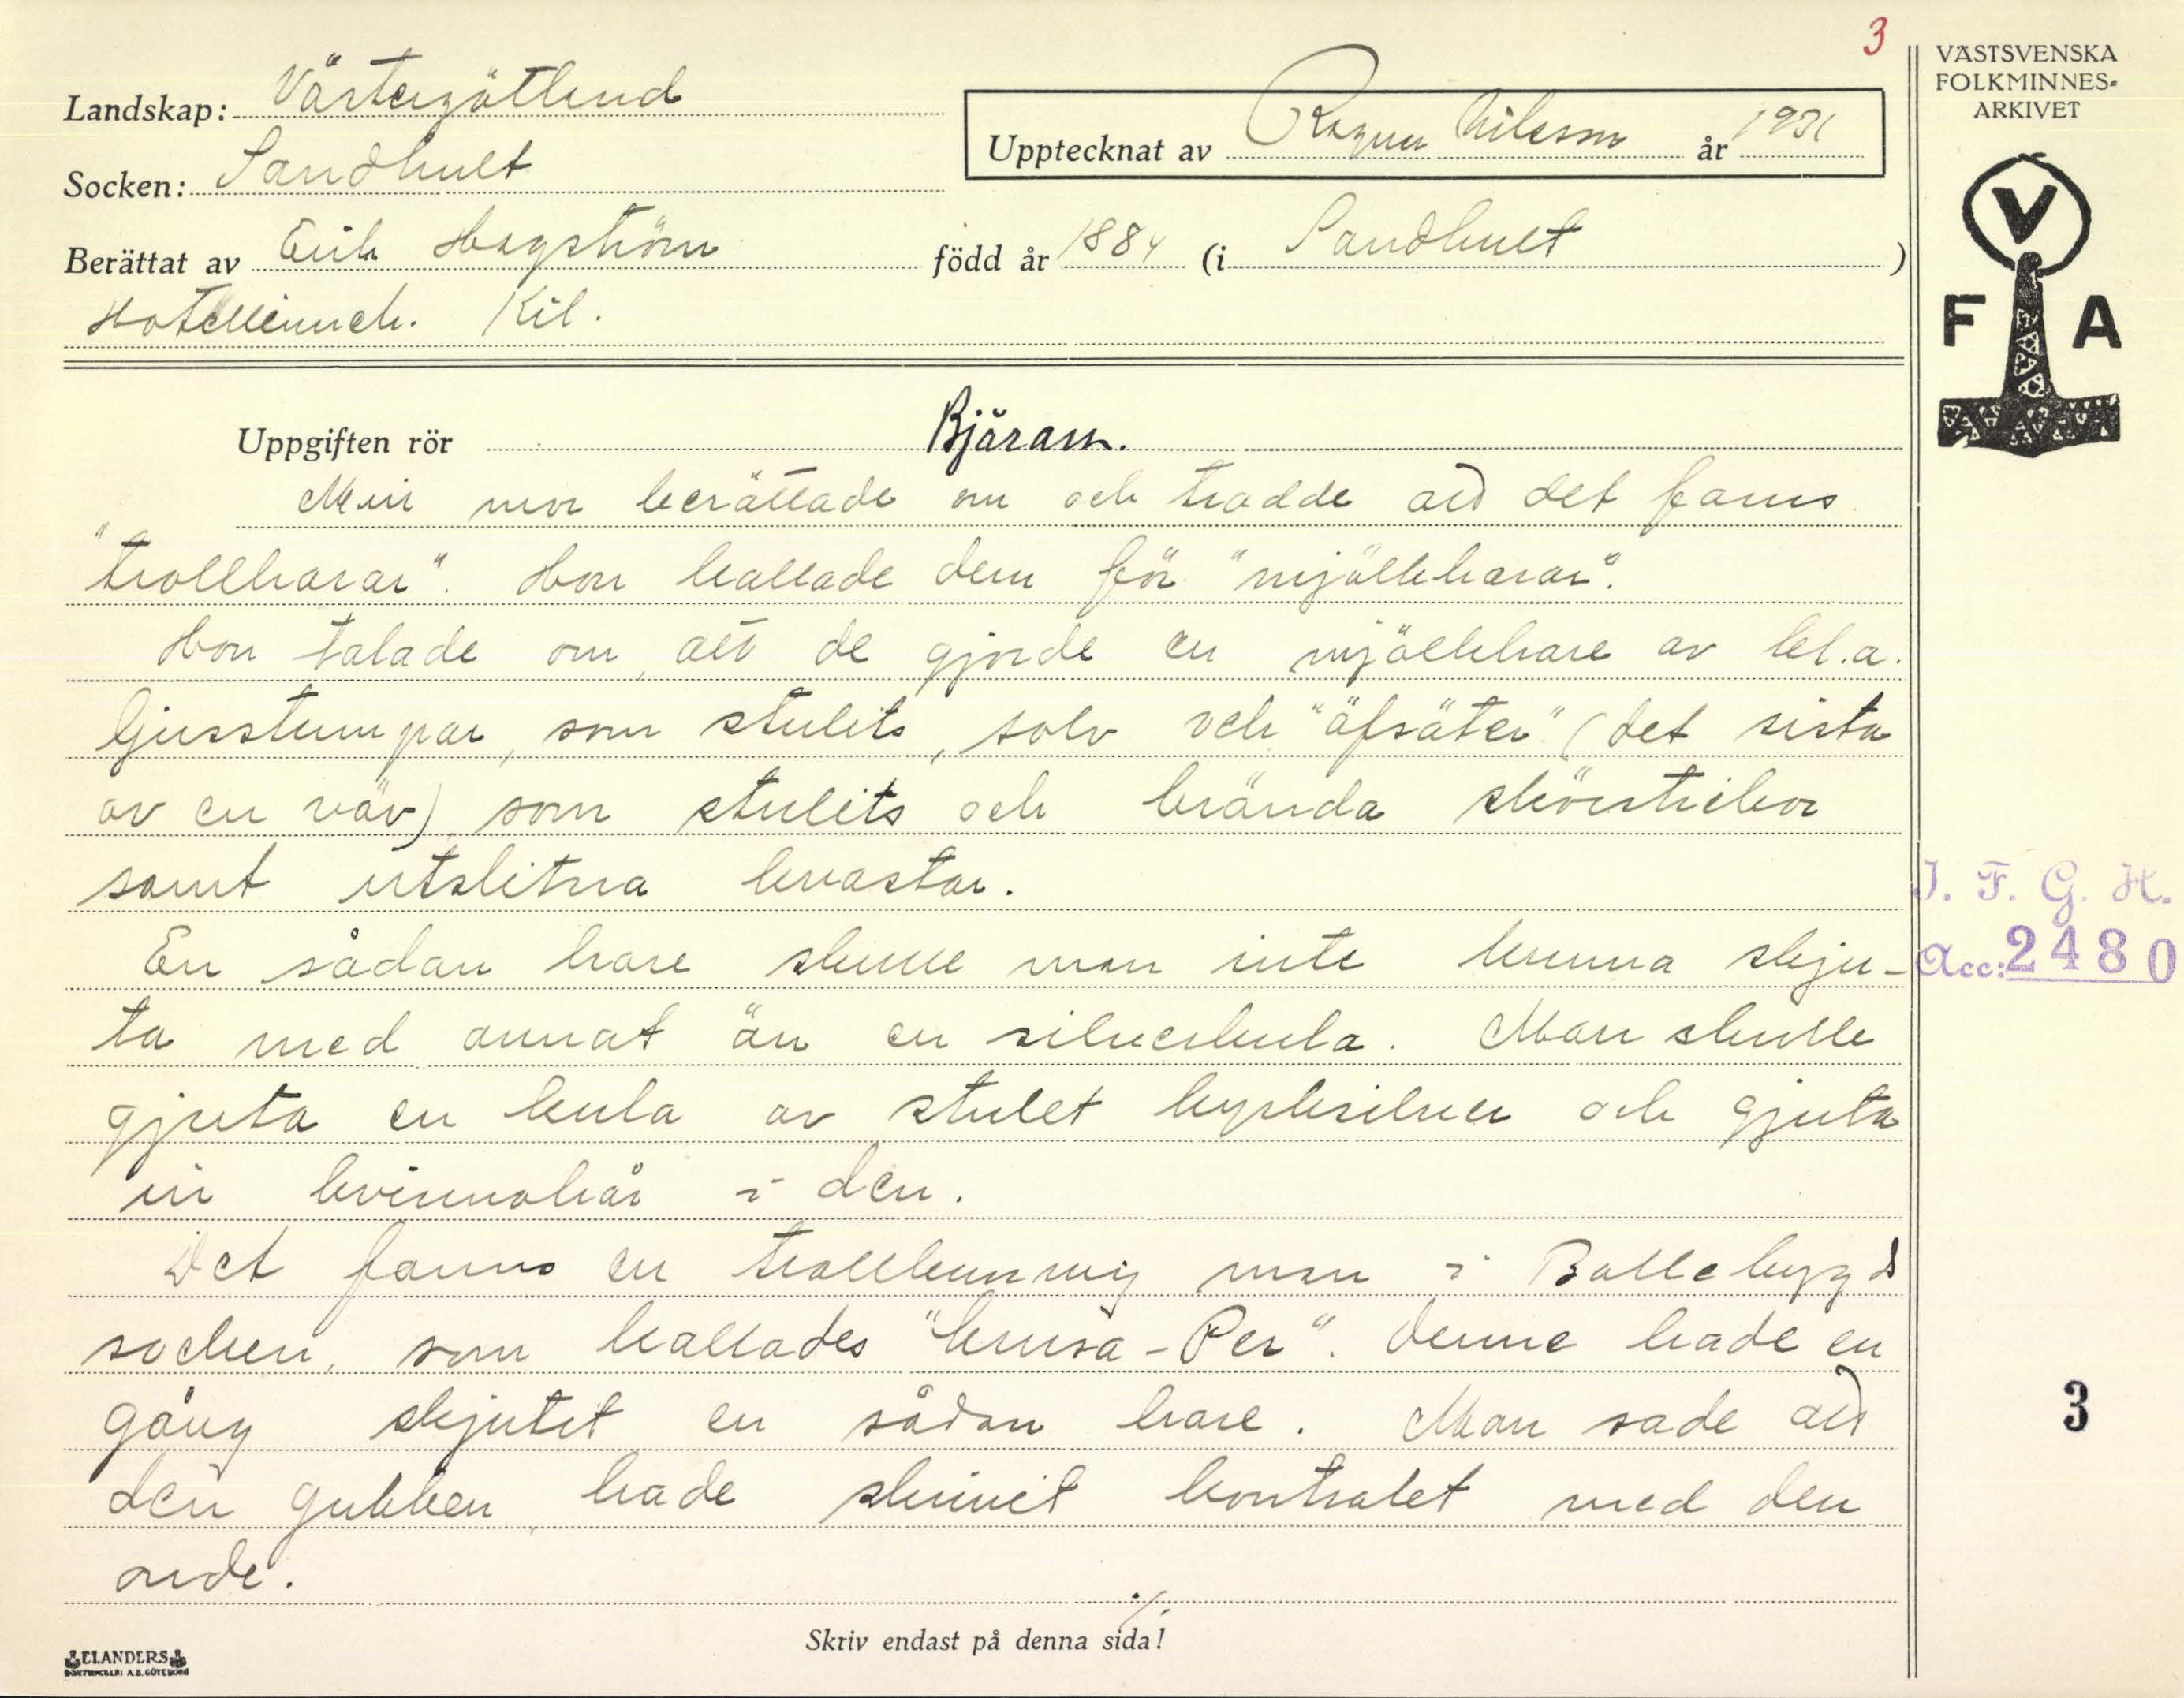 3
VÄSTSVENSKA
FOLKMINNES-
ARKIVET
Landskap: Västergötland
Upptecknat av Ragnar Nilsson år 1931
Socken: Sandhult
Berättat av Erik Hagström född år 1884 (i Sandhult)
Hotellinneh. Kil.
V
F A
Uppgiften rör Bjäran.
Min mor berättade om och trodde att det fanns
"trollharar". Hon kallade dem för "mjölkharar".
Hon talade om, att de gjorde en mjölkhare av bl.a.
ljusstumpar, som stulits, solv och "äfsäter" (det sista
av en väv), som stulits och brända skörstickor
samt utslitna kvastar.
En sådan hare skulle man inte kunna skju-
ta med annat än en silverkula. Man skulle
gjuta en kula av stulet kyrksilver och gjuta
in kvinnohår i den.
Det fanns en trollkunnig man i Bollebygd
socken, som kallades "Krusa-Per". Denne hade en
gång skjutit en sådan hare. Man sade att
den gubben hade skrivit kontrakt med den
onde.
./.
Skriv endast på denna sida!
ELANDERS
BOKTRYCKERI A.B. GÖTEBORG
I. F. G. H.
Acc: 2480
3